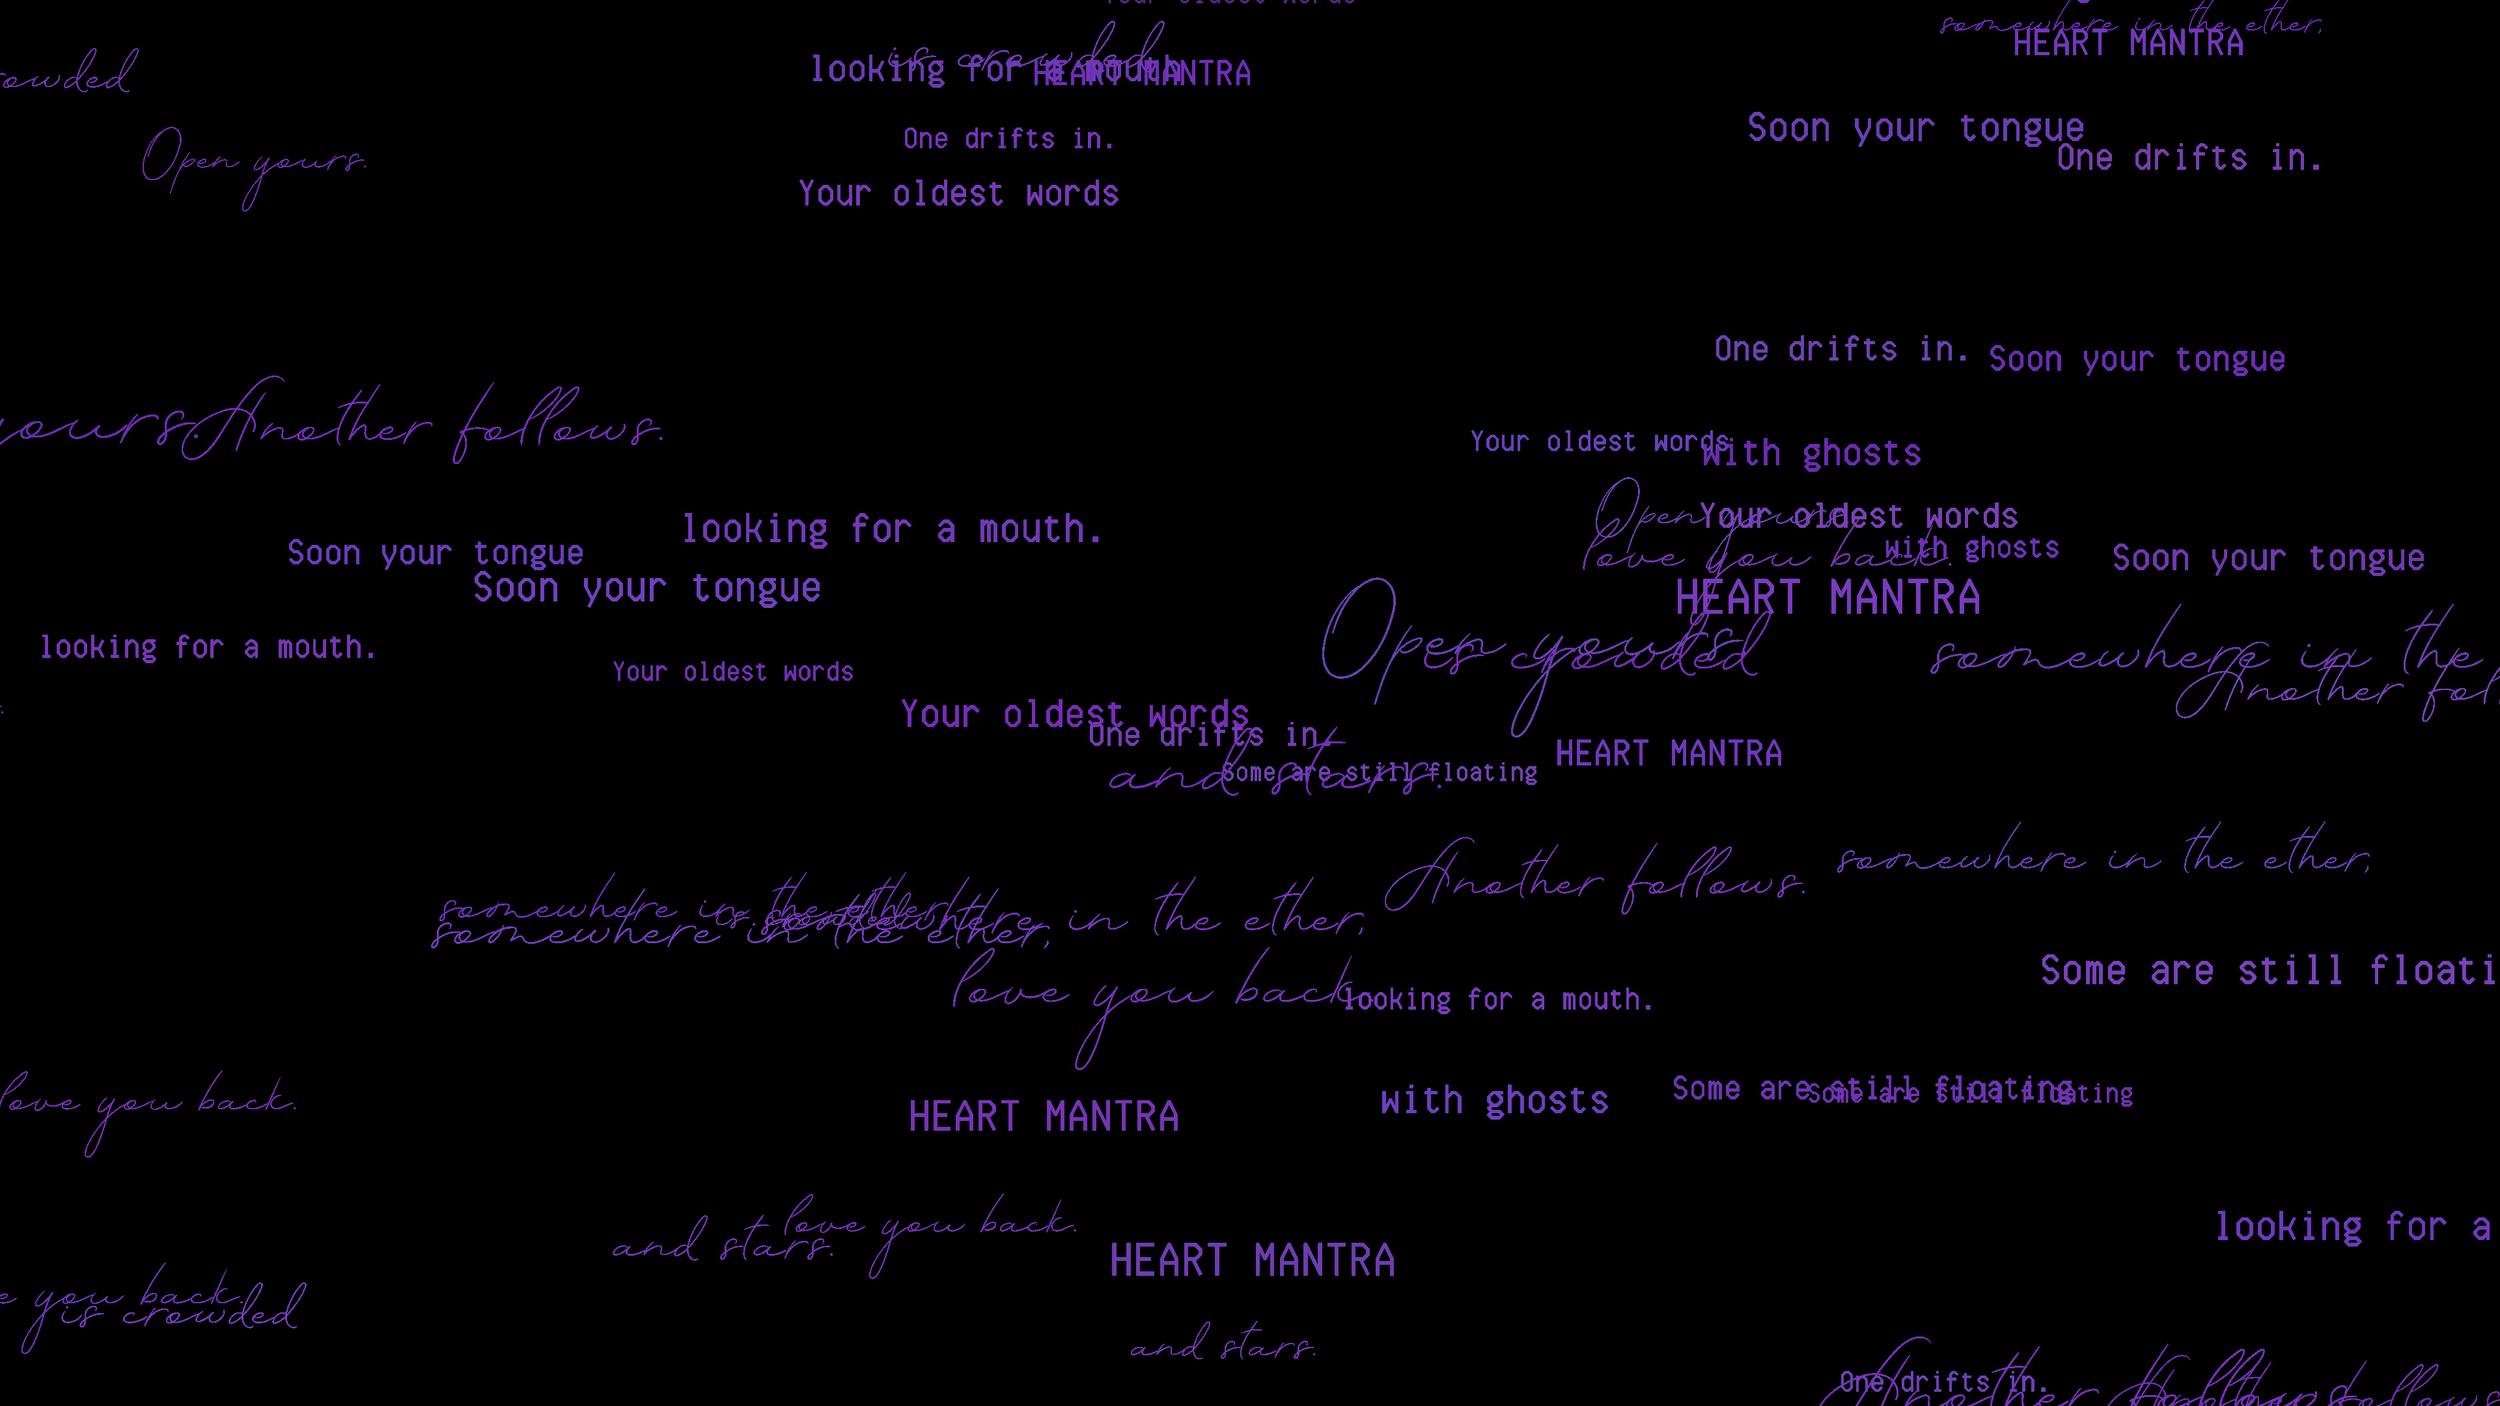 Your oldest words
somewhere in the ether,
HEART MANTRA
owded
is crowded
looking for a mouth
HEART MANTRA
Open yours.
One drifts in.
Soon your tongue
One drifts in.
Your oldest words
One drifts in.
Soon your tongue
yours.
Another follows.
Your oldest words
with ghosts
looking for a mouth.
Open yours.
Your oldest words
Soon your tongue
love you back.
with ghosts
Soon your tongue
Soon your tongue
HEART MANTRA
looking for a mouth.
Your oldest words
Open yours
is crowded
somewhere in the
Another fol
Your oldest words
One drifts in.
and stars.
Some are still floating
HEART MANTRA
somewhere in the ether,
Another follows.
somewhere in the ether,
is crowded
somewhere in the ether,
somewhere in the ether,
Some are still floati
love you back.
looking for a mouth.
love you back.
HEART MANTRA
with ghosts
Some are still floating
Some are still floating
and stars.
love you back.
looking for a
HEART MANTRA
e you back.
is crowded
and stars.
One drifts in.
Another follows